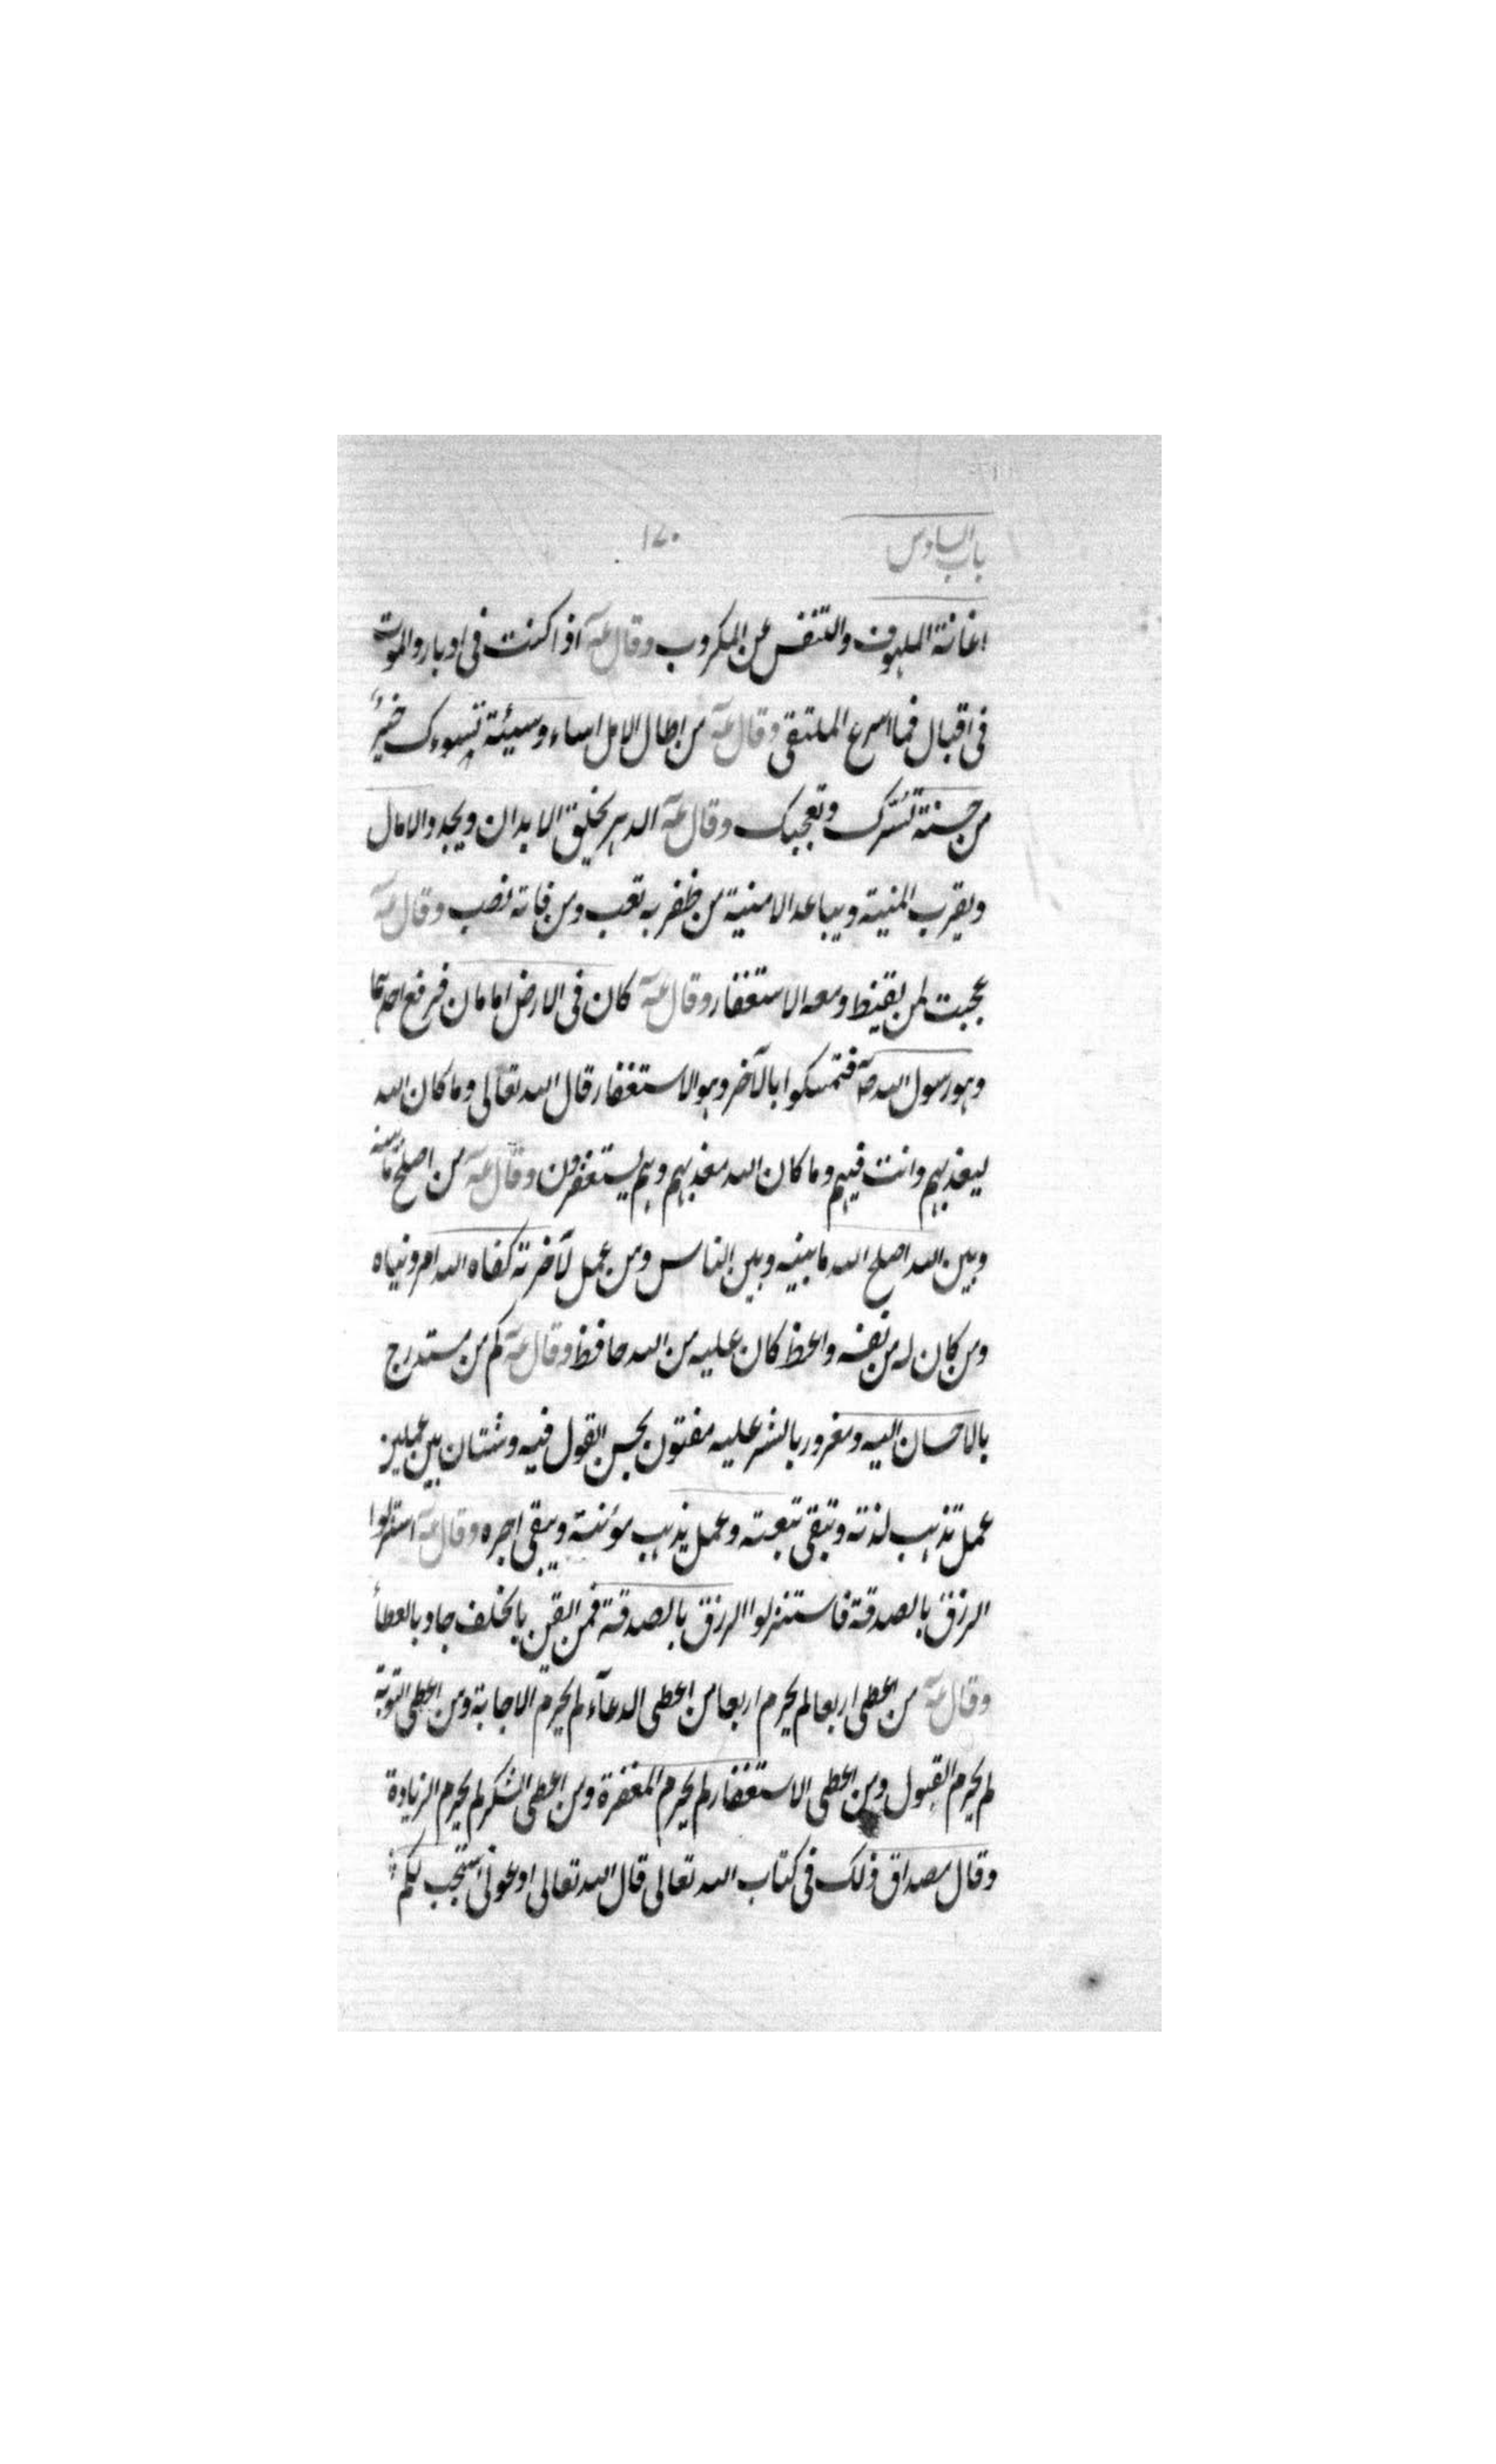 باب السادس ١٧٠
اغاثة الملهوف والتنفس عن المكروب وقال عـه اذا كنت فى ادبار والموت
فى اقبال فما اسرع الملتقى وقال عـه من اطال الامل اساء وسيئة تسوءك خيرٌ
من حسنة تسّرك وتعجبك وقال عـه الدهر يخلق الابدان ويجدد الامال
ويقرب المنية ويباعد الامنية من ظفر به تعب ومن فاته نصب وقال عـه
عجبت لمن يقنط ومعه الاستغفار وقال عـه كان فى الارض امامان فرفع احدهما
وهو رسول الله صـه فتمسكوا بالآخر وهو الاستغفار قال الله تعالى وما كان الله
ليعذبهم وانت فيهم وما كان الله معذبهم وهم يستغفرون وقال عـه من اصلح ما بينه
وبين الله اصلح الله ما بينه وبين الناس ومن عمل لآخرته كفاه الله امر دنياه
ومن كان له من نفسه واعظ كان عليه من الله حافظ وقال عـه كم من مستدرج
بالاحسان اليه ومغرور بالستر عليه مفتون بحسن القول فيه وشتان بين عملين
عمل تذهب لذته وتبقى تبعته وعمل يذهب مؤنته ويبقى اجره وقال عـه استنزلوا
الرزق بالصدقة فاستنزلوا الرزق بالصدقة فمن ايقن بالخلف جاد بالعطاء
وقال عـه من اعطى اربعا لم يحرم اربعا من اعطى الدعآء لم يحرم الاجابة ومن اعطى التوبة
لم يحرم القبول ومن اعطى الاستغفار لم يحرم المغفرة ومن اعطى الشكر لم يحرم الزيادة
وقال مصداق ذلك فى كتاب الله تعالى قال الله تعالى ادعونى استجب لكم